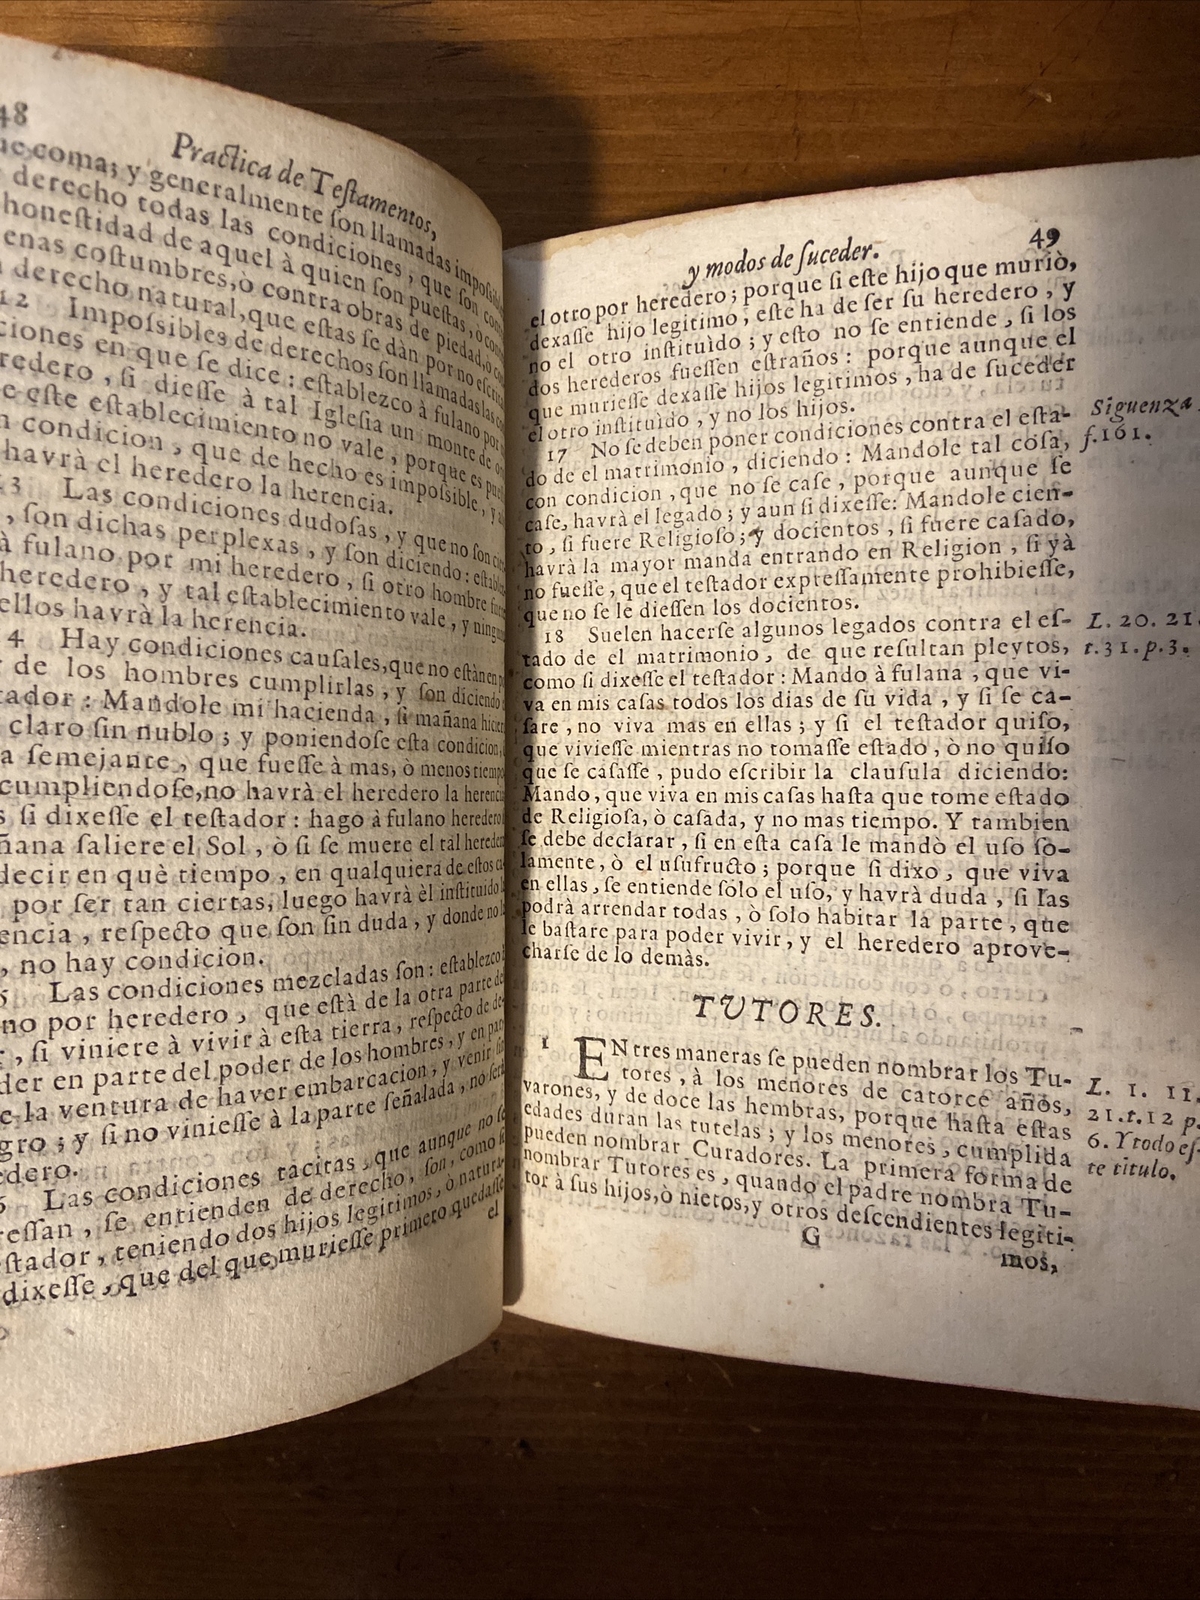 48
Practica de Teſtamentos,
coma; y generalmente ſon llamadas
derecho todas las condiciones, que ſon
honeſtidad de aquel à quien ſon pueſtas, ò
enas coſtumbres, ò contra obras de piedad, ò
derecho natural, que eſtas ſe dàn por no
12 Impoſsibles de derechos ſon llamadas las
ciones en que ſe dice: eſtablezco à fulano por
redero, ſi dieſſe à tal Igleſia un monte de
e eſte eſtablecimiento no vale, porque es
condicion, que de hecho es impoſsible, y
havrà el heredero la herencia.
3 Las condiciones dudoſas, y que no ſon
, ſon dichas perplexas, y ſon diciendo:
à fulano por mi heredero, ſi otro hombre
heredero, y tal eſtablecimiento vale, y
ellos havrà la herencia.
4 Hay condiciones cauſales, que no eſtàn en
de los hombres cumplirlas, y ſon diciendo
tador: Mandole mi hacienda, ſi mañana
claro ſin nublo; y poniendoſe eſta condicion,
a ſemejante, que fueſſe à mas, ò menos tiempo
cumpliendoſe, no havrà el heredero la
s, ſi dixeſſe el teſtador: hago à fulano heredero
ñana ſaliere el Sol, ò ſi ſe muere el tal
decir en què tiempo, en qualquiera de eſtos
por ſer tan ciertas, luego havrà èl inſtituìdo
encia, reſpecto que ſon ſin duda, y donde no
, no hay condicion.
5 Las condiciones mezcladas ſon:
no por heredero, que eſtà de la otra parte
, ſi viniere à vivir à eſta tierra, reſpecto de
der en parte del poder de los hombres, y en
e la ventura de haver embarcacion, y venir
gro; y ſi no vinieſſe à la parte ſeñalada, no
edero.
6 Las condiciones tacitas, que aunque no ſe
reſſan, ſe entienden de derecho, ſon, como
ſtador, teniendo dos hijos legitimos, ò
dixeſſe, que del que murieſſe primero quedaſſe
el
y modos de ſuceder.
49
el otro por heredero; porque ſi eſte hijo que muriò,
dexaſſe hijo legitimo, eſte ha de ſer ſu heredero, y
no el otro inſtituìdo; y eſto no ſe entiende, ſi los
dos herederos fueſſen eſtraños: porque aunque el
que murieſſe dexaſſe hijos legitimos, ha de ſuceder
el otro inſtituìdo, y no los hijos.
17 No ſe deben poner condiciones contra el eſta-
do de el matrimonio, diciendo: Mandole tal coſa,
con condicion, que no ſe caſe, porque aunque ſe
caſe, havrà el legado; y aun ſi dixeſſe: Mandole cien-
to, ſi fuere Religioſo; y docientos, ſi fuere caſado,
havrà la mayor manda entrando en Religion, ſi yà
no fueſſe, que el teſtador expreſſamente prohibieſſe,
que no ſe le dieſſen los docientos.
Siguenza
f.161.
18 Suelen hacerſe algunos legados contra el eſ-
tado de el matrimonio, de que reſultan pleytos,
como ſi dixeſſe el teſtador: Mando à fulana, que vi-
va en mis caſas todos los dias de ſu vida, y ſi ſe ca-
ſare, no viva mas en ellas; y ſi el teſtador quiſo,
que vivieſſe mientras no tomaſſe eſtado, ò no quiſo
que ſe caſaſſe, pudo eſcribir la clauſula diciendo:
Mando, que viva en mis caſas haſta que tome eſtado
de Religioſa, ò caſada, y no mas tiempo. Y tambien
ſe debe declarar, ſi en eſta caſa le mandò el uſo ſo-
lamente, ò el uſufructo; porque ſi dixo, que viva
en ellas, ſe entiende ſolo el uſo, y havrà duda, ſi las
podrà arrendar todas, ò ſolo habitar la parte, que
le baſtare para poder vivir, y el heredero aprove-
charſe de lo demàs.
L. 20. 21.
t.31.p.3.
TUTORES.
1 EN tres maneras ſe pueden nombrar los Tu-
tores, à los menores de catorce años,
varones, y de doce las hembras, porque haſta eſtas
edades duran las tutelas; y los menores, cumplida
pueden nombrar Curadores. La primera forma de
nombrar Tutores es, quando el padre nombra Tu-
tor à ſus hijos, ò nietos, y otros deſcendientes legiti-
L. 1. 11.
21.t.12 p.
6. Y todo eſ-
te titulo.
G
mos,